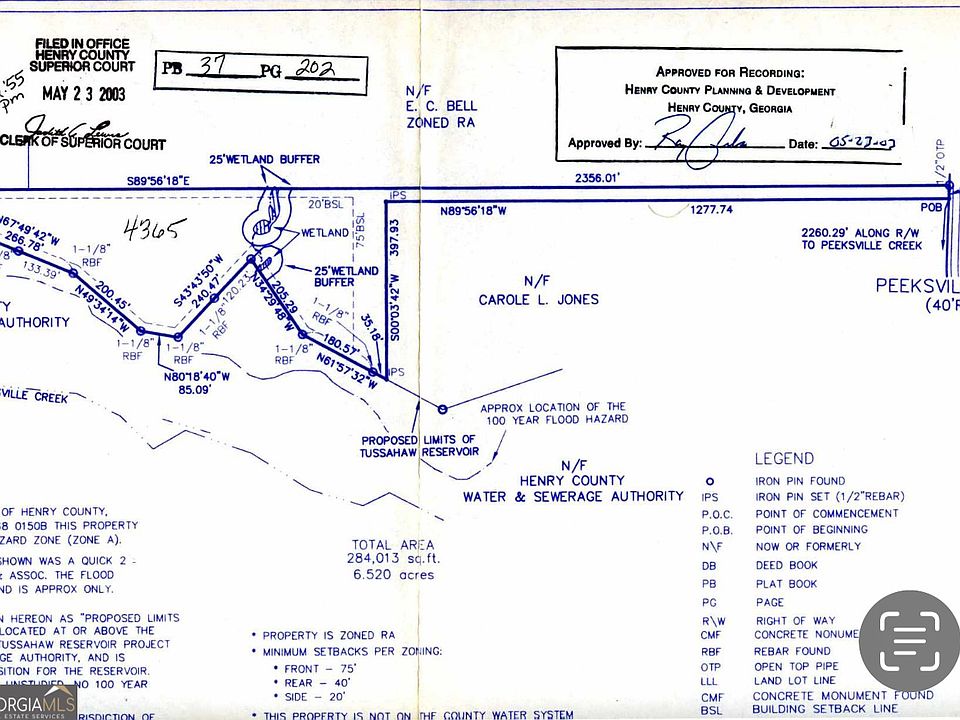 FILED IN OFFICE
HENRY COUNTY
SUPERIOR COURT
:55 pm
MAY 23 2003
CLERK OF SUPERIOR COURT
PB 37 PG 202
N/F
E. C. BELL
ZONED RA
APPROVED FOR RECORDING:
HENRY COUNTY PLANNING & DEVELOPMENT
HENRY COUNTY, GEORGIA
Approved By: Date:
1/2"OTP
25'WETLAND BUFFER
S89°56'18"E
2356.01'
IPS
20'BSL
75'BSL
397.93
S00°03'42"W
N89°56'18"W
1277.74
POB
2260.29' ALONG R/W
TO PEEKSVILLE CREEK
4365
WETLAND
25'WETLAND
BUFFER
N67°49'42"W
266.78'
133.39'
1-1/8"
RBF
200.45'
N49°34'14"W
S43°43'50"W
240.47'
120.23'
1-1/8"
RBF
205.29
N34°29'48"W
1-1/8"
RBF
35.18'
180.57'
N61°57'32"W
IPS
1-1/8"
RBF
1-1/8"
RBF
1-1/8"
RBF
N80°18'40"W
85.09'
N/F
CAROLE L. JONES
PEEKSVIL
(40'R
TY
AUTHORITY
VILLE CREEK
APPROX LOCATION OF THE
100 YEAR FLOOD HAZARD
PROPOSED LIMITS OF
TUSSAHAW RESERVOIR
N/F
HENRY COUNTY
WATER & SEWERAGE AUTHORITY
TOTAL AREA
284,013 sq.ft.
6.520 acres
OF HENRY COUNTY,
68 0150B THIS PROPERTY
ZARD ZONE (ZONE A).
SHOWN WAS A QUICK 2 -
& ASSOC. THE FLOOD
ND IS APPROX ONLY.
N HEREON AS "PROPOSED LIMITS
LOCATED AT OR ABOVE THE
TUSSAHAW RESERVOIR PROJECT
GE AUTHORITY, AND IS
SITION FOR THE RESERVOIR.
UNSTUDIED, NO 100 YEAR
RISDICTION OF
* PROPERTY IS ZONED RA
* MINIMUM SETBACKS PER ZONING:
* FRONT - 75'
* REAR - 40'
* SIDE - 20'
* THIS PROPERTY IS NOT ON THE COUNTY WATER SYSTEM
LEGEND
O IRON PIN FOUND
IPS IRON PIN SET (1/2"REBAR)
P.O.C. POINT OF COMMENCEMENT
P.O.B. POINT OF BEGINNING
N\F NOW OR FORMERLY
DB DEED BOOK
PB PLAT BOOK
PG PAGE
R\W RIGHT OF WAY
CMF CONCRETE NONUME
RBF REBAR FOUND
OTP OPEN TOP PIPE
LLL LAND LOT LINE
CMF CONCRETE MONUMENT FOUND
BSL BUILDING SETBACK LINE
ORGIAMLS
ESTATE SERVICES